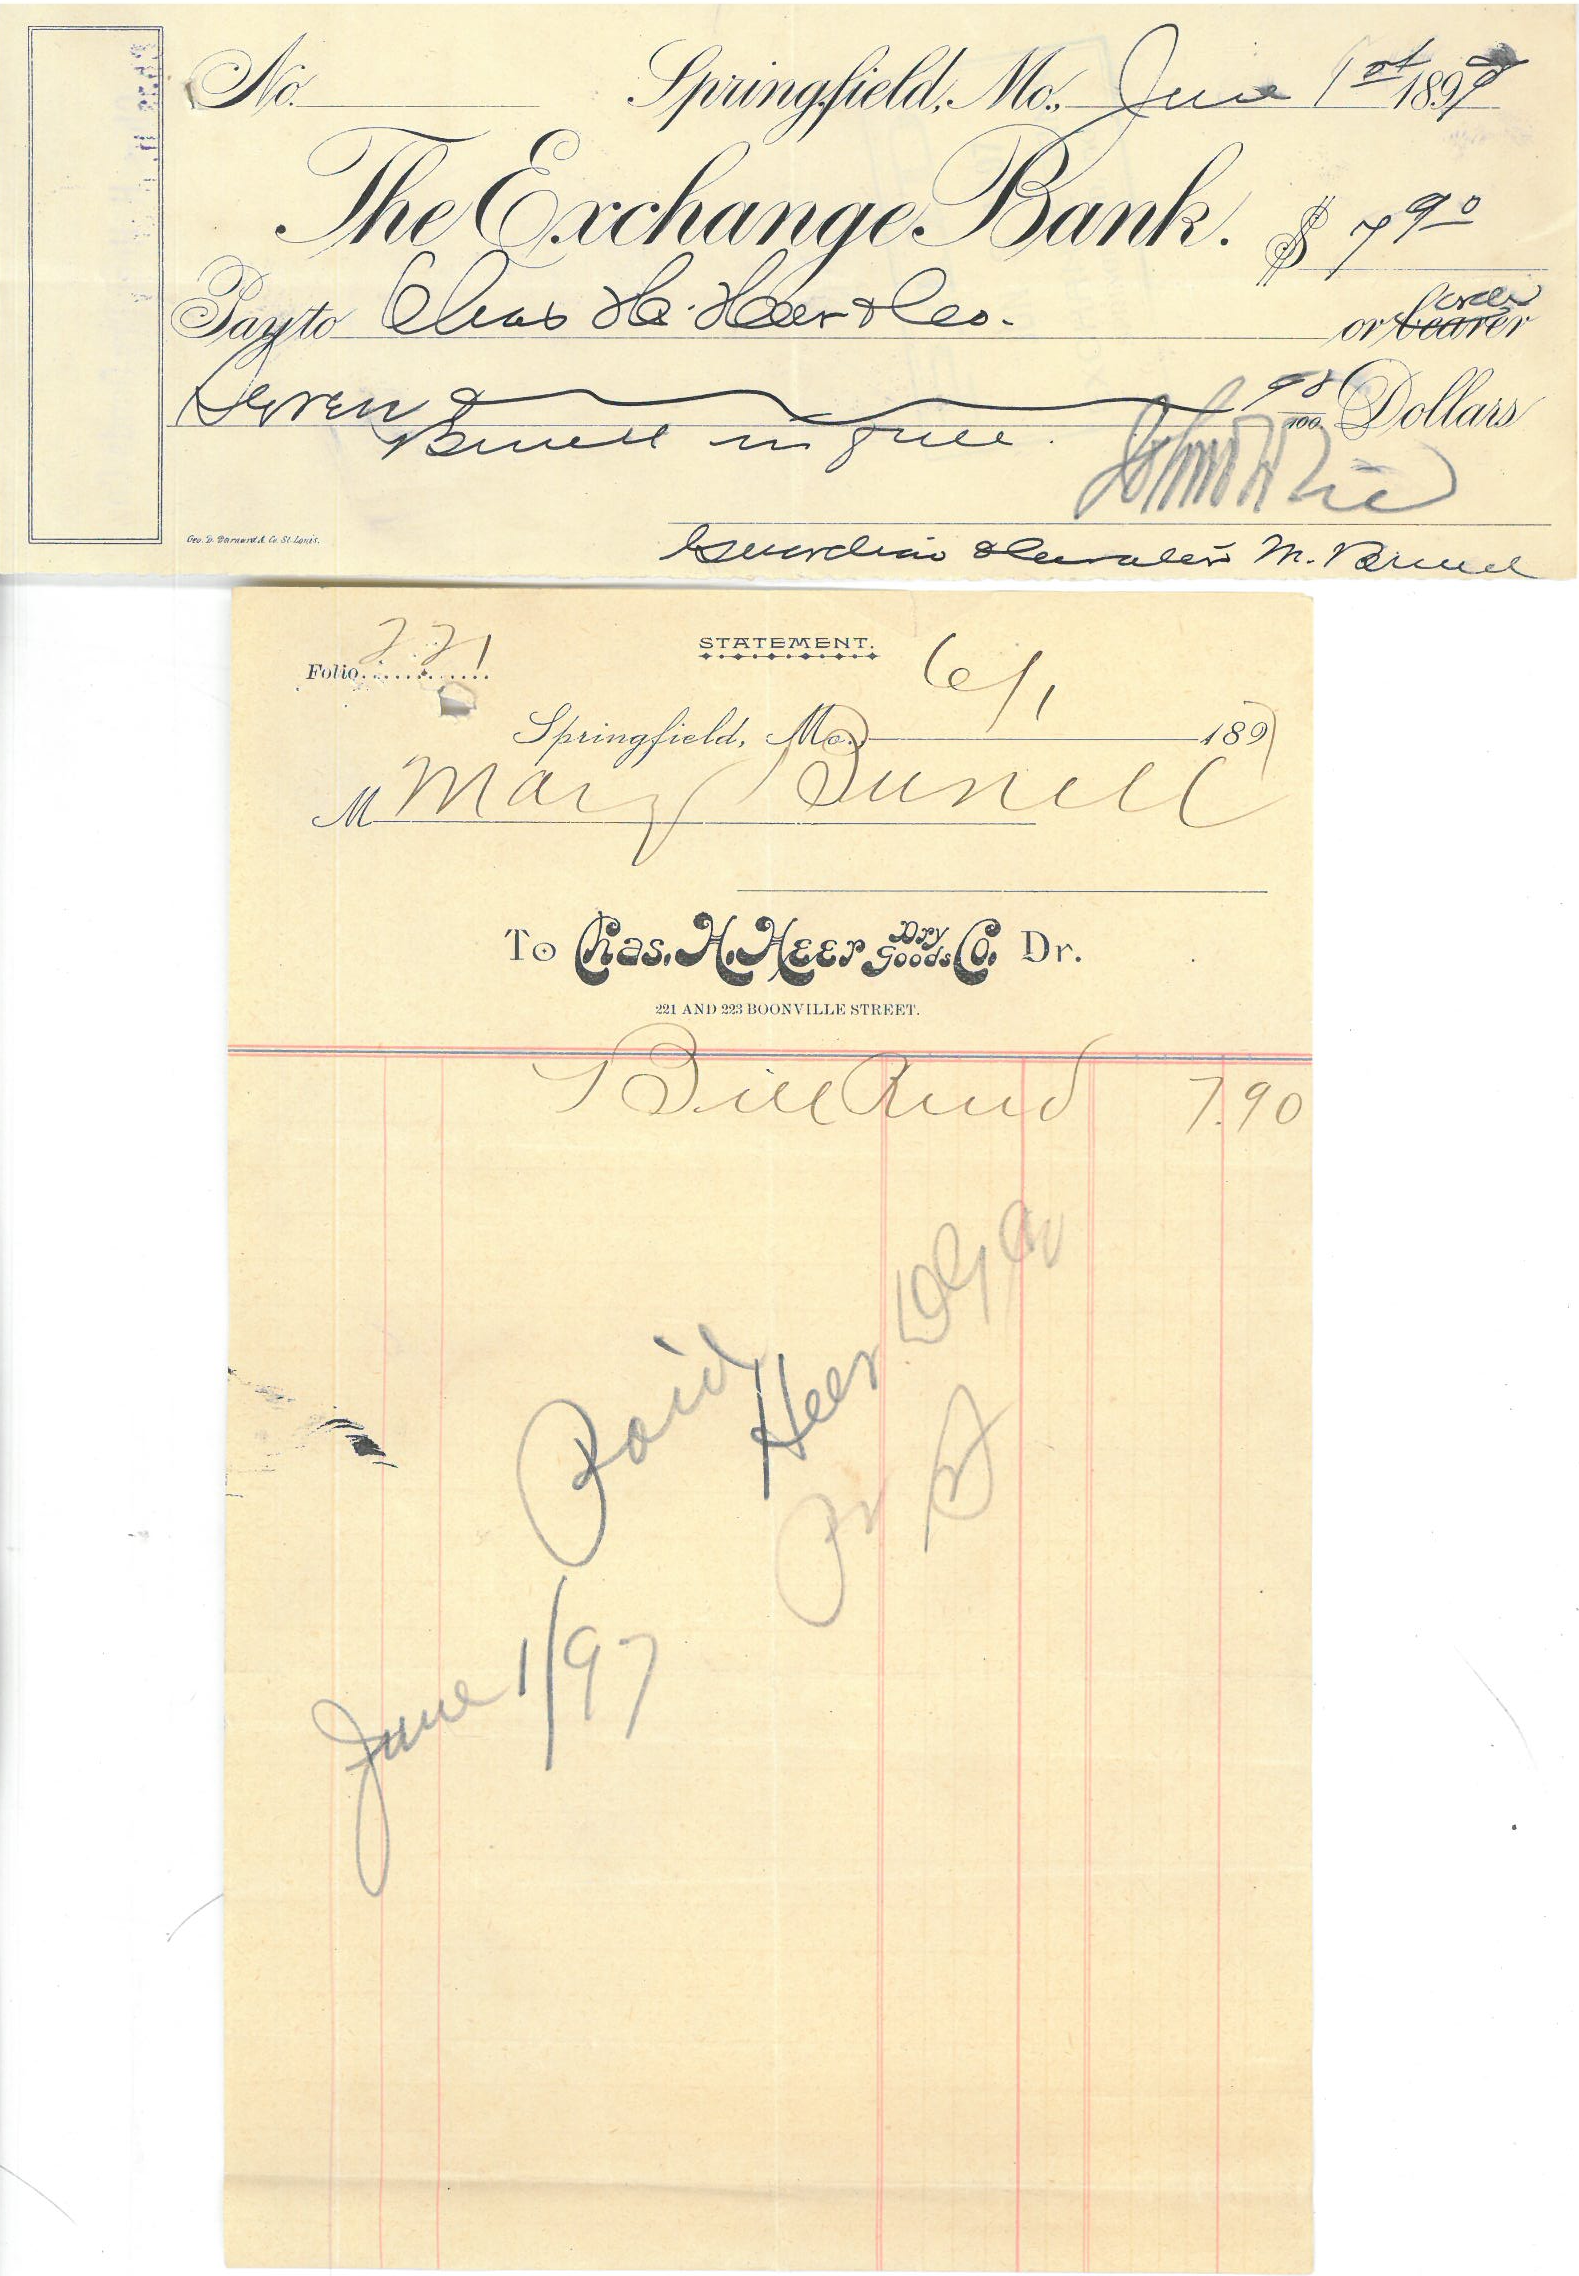 No. Springfield, Mo., June 1st 1897
The Exchange Bank. $ 7 90
Pay to Chas H. Heer & Co. or bearer order
Seven 98/100 Dollars
in full.
Geo. D. Barnard & Co. St. Louis.
Guardian & M.
Folio 221 STATEMENT. 6/1
Springfield, Mo., 1897
M Mary Bunell
To Chas. H. Heer Dry Goods Co. Dr.
221 AND 223 BOONVILLE STREET.
Bill Rend 7.90
Paid
Heer D G Co
June 1/97